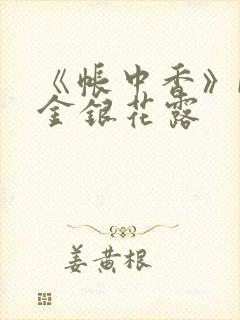 《帐中香》
金银花露
姜黄根